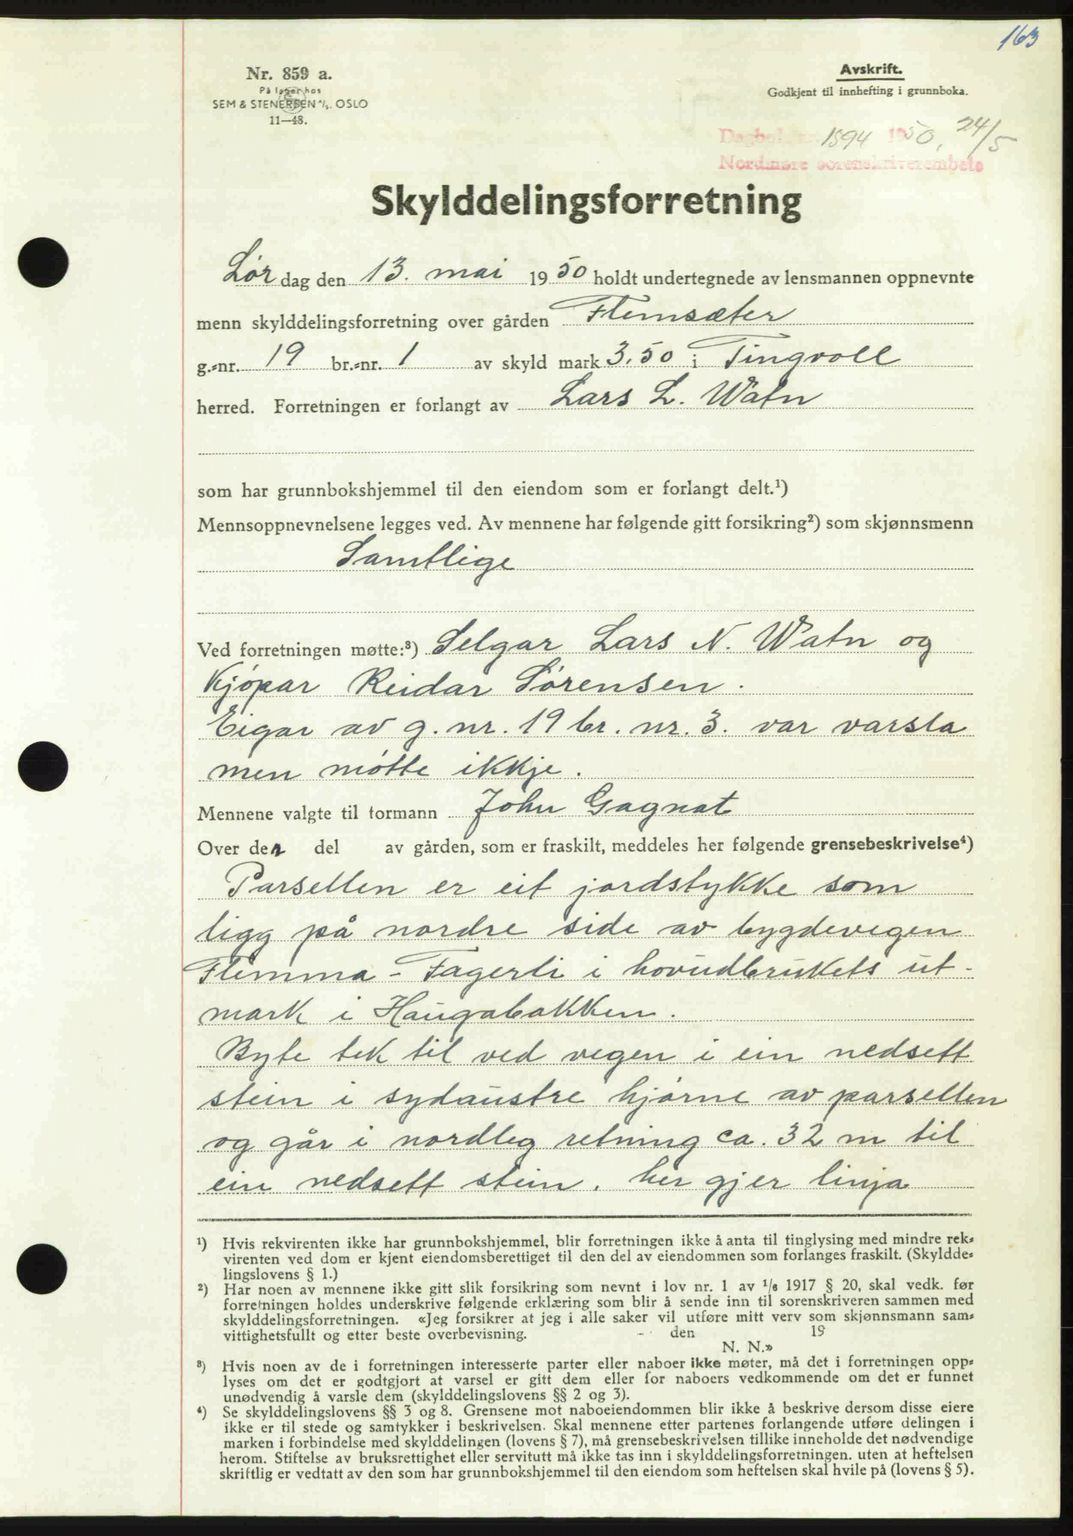 163
Nr. 859 a.
På lager hos
SEM & STENERSEN A/S. OSLO
11—48.
Avskrift.
Godkjent til innhefting i grunnboka.
1594 1950, 24/5
Nordmøre sorenskriverembete
Skylddelingsforretning
Lør dag den 13. mai 1950 holdt undertegnede av lensmannen oppnevnte
menn skylddelingsforretning over gården Flemsæter
g.-nr. 19 br.-nr. 1 av skyld mark 3,50 i Tingvoll
herred. Forretningen er forlangt av Lars L. Watn
som har grunnbokshjemmel til den eiendom som er forlangt delt.¹)
Mennsoppnevnelsene legges ved. Av mennene har følgende gitt forsikring²) som skjønnsmenn
Samtlige
Ved forretningen møtte:³) Selgar Lars N. Watn og
Kjøpar Reidar Sørensen.
Eigar av g.nr. 19 br.nr. 3. var varsla
men møtte ikkje.
Mennene valgte til formann John Gagnat
Over den del av gården, som er fraskilt, meddeles her følgende grensebeskrivelse⁴)
Parsellen er eit jordstykke som
ligg på nordre side av bygdevegen
Flemma - Fagerli i hovudbrukets ut-
mark i Haugabakken.
Byte tek til ved vegen i ein nedsett
stein i sydaustre hjørne av parsellen
og går i nordleg retning ca. 32 m til
ein nedsett stein. her gjer linja
¹) Hvis rekvirenten ikke har grunnbokshjemmel, blir forretningen ikke å anta til tinglysing med mindre rek-
virenten ved dom er kjent eiendomsberettiget til den del av eiendommen som forlanges fraskilt. (Skyldde-
lingslovens § 1.)
²) Har noen av mennene ikke gitt slik forsikring som nevnt i lov nr. 1 av 1/6 1917 § 20, skal vedk. før
forretningen holdes underskrive følgende erklæring som blir å sende inn til sorenskriveren sammen med
skylddelingsforretningen. «Jeg forsikrer at jeg i alle saker vil utføre mitt verv som skjønnsmann sam-
vittighetsfullt og etter beste overbevisning. - den 19
N. N.»
³) Hvis noen av de i forretningen interesserte parter eller naboer ikke møter, må det i forretningen opp-
lyses om det er godtgjort at varsel er gitt dem eller for naboers vedkommende om det er funnet
unødvendig å varsle dem (skylddelingslovens §§ 2 og 3).
⁴) Se skylddelingslovens §§ 3 og 8. Grensene mot naboeiendommen blir ikke å beskrive dersom disse eiere
ikke er til stede og samtykker i beskrivelsen. Skal mennene etter partenes forlangende utføre delingen i
marken i forbindelse med skylddelingen (lovens § 7), må grensebeskrivelsen tillike inneholde det nødvendige
herom. Stiftelse av bruksrettighet eller servitutt må ikke tas inn i skylddelingsforretningen. uten at heftelsen
skriftlig er vedtatt av den som har grunnbokshjemmel til den eiendom som heftelsen skal hvile på (lovens § 5).